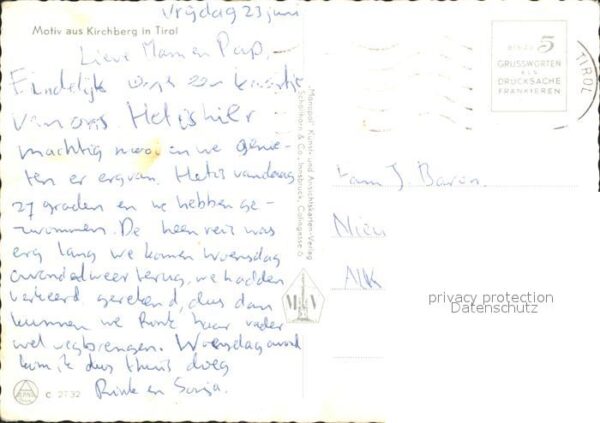 Vrijdag 23 juni
Motiv aus Kirchberg in Tirol
Lieve Mam en Pap,
Eindelijk eens een kaartje
van ons. Het is hier
machtig mooi en we genie-
ten er erg van. Het is vandaag
27 graden en we hebben ge-
zwommen. De heen reis was
erg lang we komen Woensdag
avond weer terug, we hadden
verkeerd gerekend, dus dan
kunnen we Rink haar vader
wel wegbrengen. Woensdagavond
kom ik dus thuis doeg
Rink en Sonja.
C 2732
"Monopol" Kunst- und Ansichtskarten-Verlag
Schöllhorn & Co., Innsbruck, Colingasse 5
M V
BIS ZU 5
GRUSSWORTEN
ALS
DRUCKSACHE
FRANKIEREN
TIROL
Fam J. Baren.
Nieu
Alk
privacy protection
Datenschutz